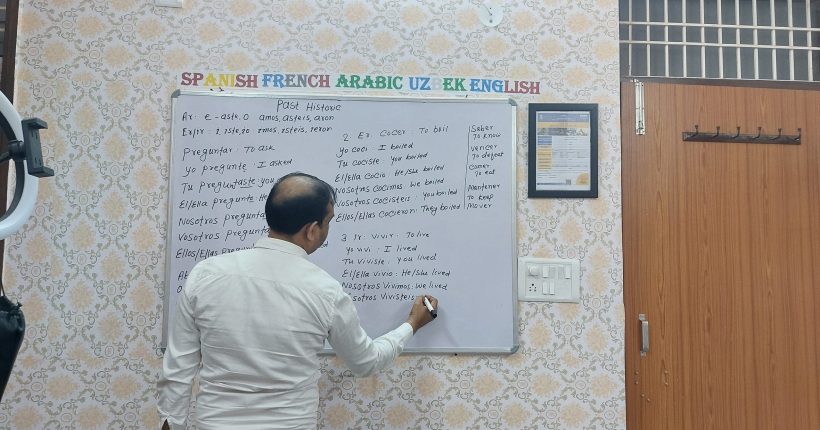 SPANISH FRENCH ARABIC UZBEK ENGLISH
Past Historic
Ar: e-aste, o amos, asteis, aron
Er/Ir: i iste, io imos, isteis, ieron
Preguntar: To ask
yo pregunte: I asked
Tu preguntaste: you
El/Ella pregunte: He
Nosotros pregunta
Vosotros pregunta
Ellos/Ellas pregunta
2 Er: Cocer: To boil
yo coci: I boiled
Tu cociste: you boiled
El/Ella cocio: He/She boiled
Nosotros cocimos: we boiled
Vosotros cocisteis: you boiled
Ellos/Ellas cocieron: They boiled
3 Ir: vivir: To live
yo vivi: I lived
Tu viviste: you lived
El/Ella vivio: He/She lived
Nosotros vivimos: we lived
osotros vivisteis:
Saber
To know
Vencer
To defeat
Comer
To eat
Mantener
To keep
Mover